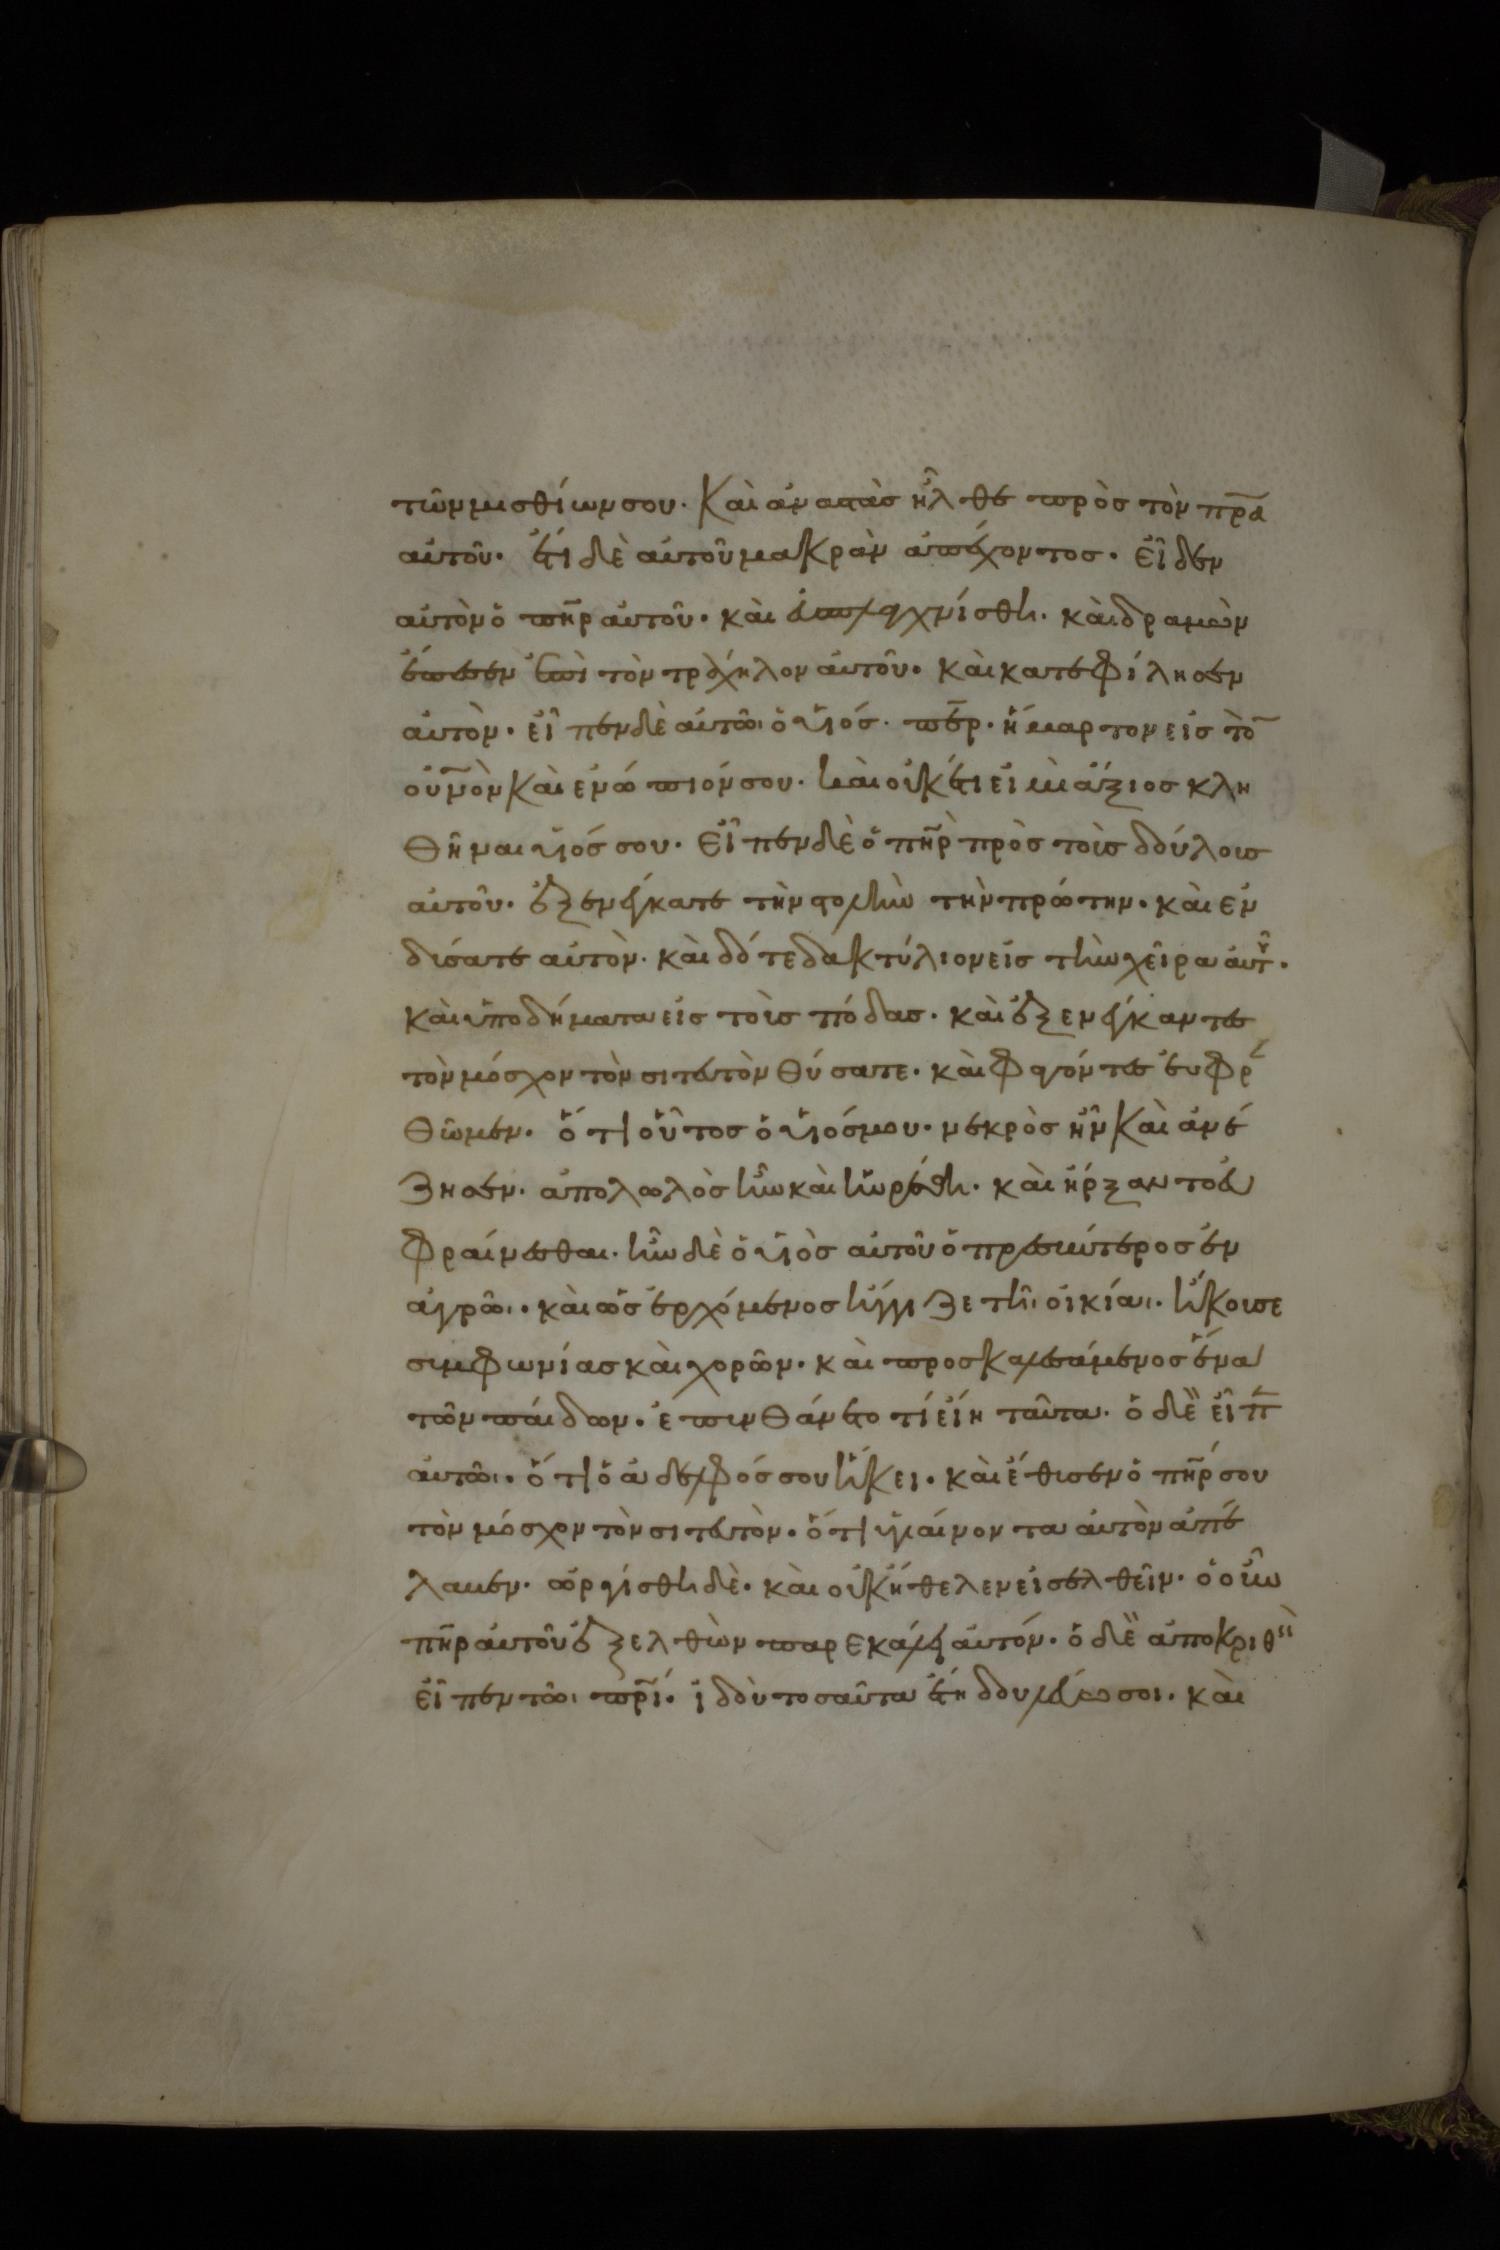 τῶν μισθίων σου. Καὶ ἀναστὰς ἦλθε πρὸς τὸν πρ̅α
αὐτοῦ. ἔτι δὲ αὐτοῦ μακρὰν ἀπέχοντος. εἶδεν
αὐτὸν ὁ πη̅ρ αὐτοῦ. καὶ ἐσπλαγχνίσθη. καὶ δραμὼν
ἔπεσεν ἐπὶ τὸν τράχηλον αὐτοῦ. καὶ κατεφίλησεν
αὐτὸν. εἶπεν δὲ αὐτῶι ὁ υἱός. πε̅ρ. ἥμαρτον εἰς τὸ
ου̅νὸν καὶ ενώπιόν σου. καὶ οὐκέτι εἰμὶ ἄξιος κλη
θῆναι υἱός σου. Εἶπεν δὲ ὁ πη̅ρ πρὸς τοὺς δούλους
αὐτοῦ. ἐξενέγκατε τὴν στολὴν τὴν πρώτην. καὶ ἐν
δύσατε αὐτὸν. καὶ δότε δακτύλιον εἰς τὴν χεῖρα αὐτ̑.
καὶ ὑποδήματα εἰς τοὺς πόδας. καὶ ἐξενέγκαντες
τὸν μόσχον τὸν σιτευτὸν θύσατε. καὶ φαγόντες εὐφρ
θῶμεν. ὅτι οὗτος ὁ υἱός μου. νεκρὸς ἦν καὶ ἀνέ
ζησεν. ἀπολωλὸς ἦν καὶ ηὑρέθη. καὶ ἤρξαντο εὐ
φραίνεσθαι. ἦν δὲ ὁ υἱὸς αὐτοῦ ὁ πρεσβύτερος ἐν
ἀγρῶι. καὶ ὡς ἐρχόμενος ἤγγιζε τῆι οἰκίαι. ἤκουσε
συμφωνίας καὶ χορῶν. καὶ προσκαλεσάμενος ἕνα
τῶν παίδων. ἐπυνθάνετο τί εἴη ταῦτα. ὁ δὲ εἶπ
αὐτῶι. ὅτι ὁ ἀδελφός σου ἥκει. καὶ ἔθυσεν ὁ πη̅ρ σου
τὸν μόσχον τὸν σιτευτὸν. ὅτι ὑγιαίνοντα αὐτὸν ἀπέ
λαβεν. ὠργίσθη δὲ. καὶ οὐκ ἤθελεν εἰσελθεῖν. ὁ οὖν
πη̅ρ αὐτοῦ ἐξελθὼν παρεκάλει αὐτόν. ὁ δὲ ἀποκριθεὶ
εἶπεν τῶι πρ̅ί. ἰδοὺ τοσαῦτα ἔτη δουλεύω σοι. καὶ